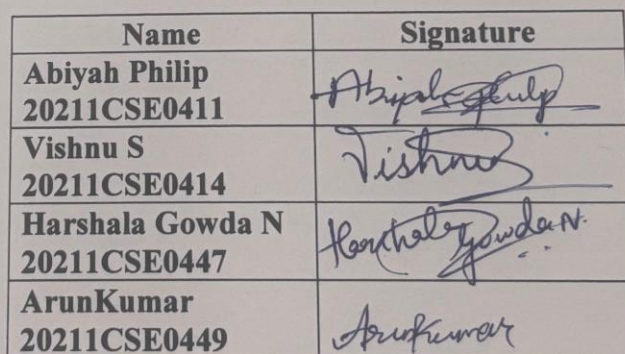 Name Signature
Abiyah Philip
20211CSE0411 Abiyah Philip
Vishnu S
20211CSE0414 Vishnu S
Harshala Gowda N
20211CSE0447 Harshala Gowda N.
ArunKumar
20211CSE0449 Arunkumar